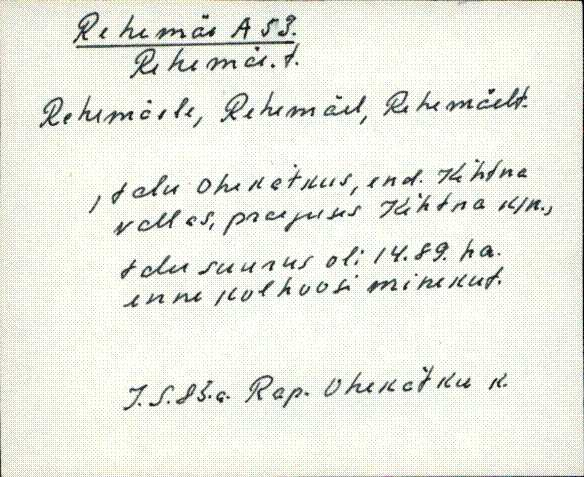 Rehemäe A 53.
Rehemäe. t.
Rehemäele, Rehemäel, Rehemäelt.
, talu Ohekatkus, end. Kehtna
vallas, praegusес Kehtna k/n.,
talu suurus oli 14.89. ha.
enne kolhoosi minekut.
J. S. 83.a. Rap. Ohekatku k.